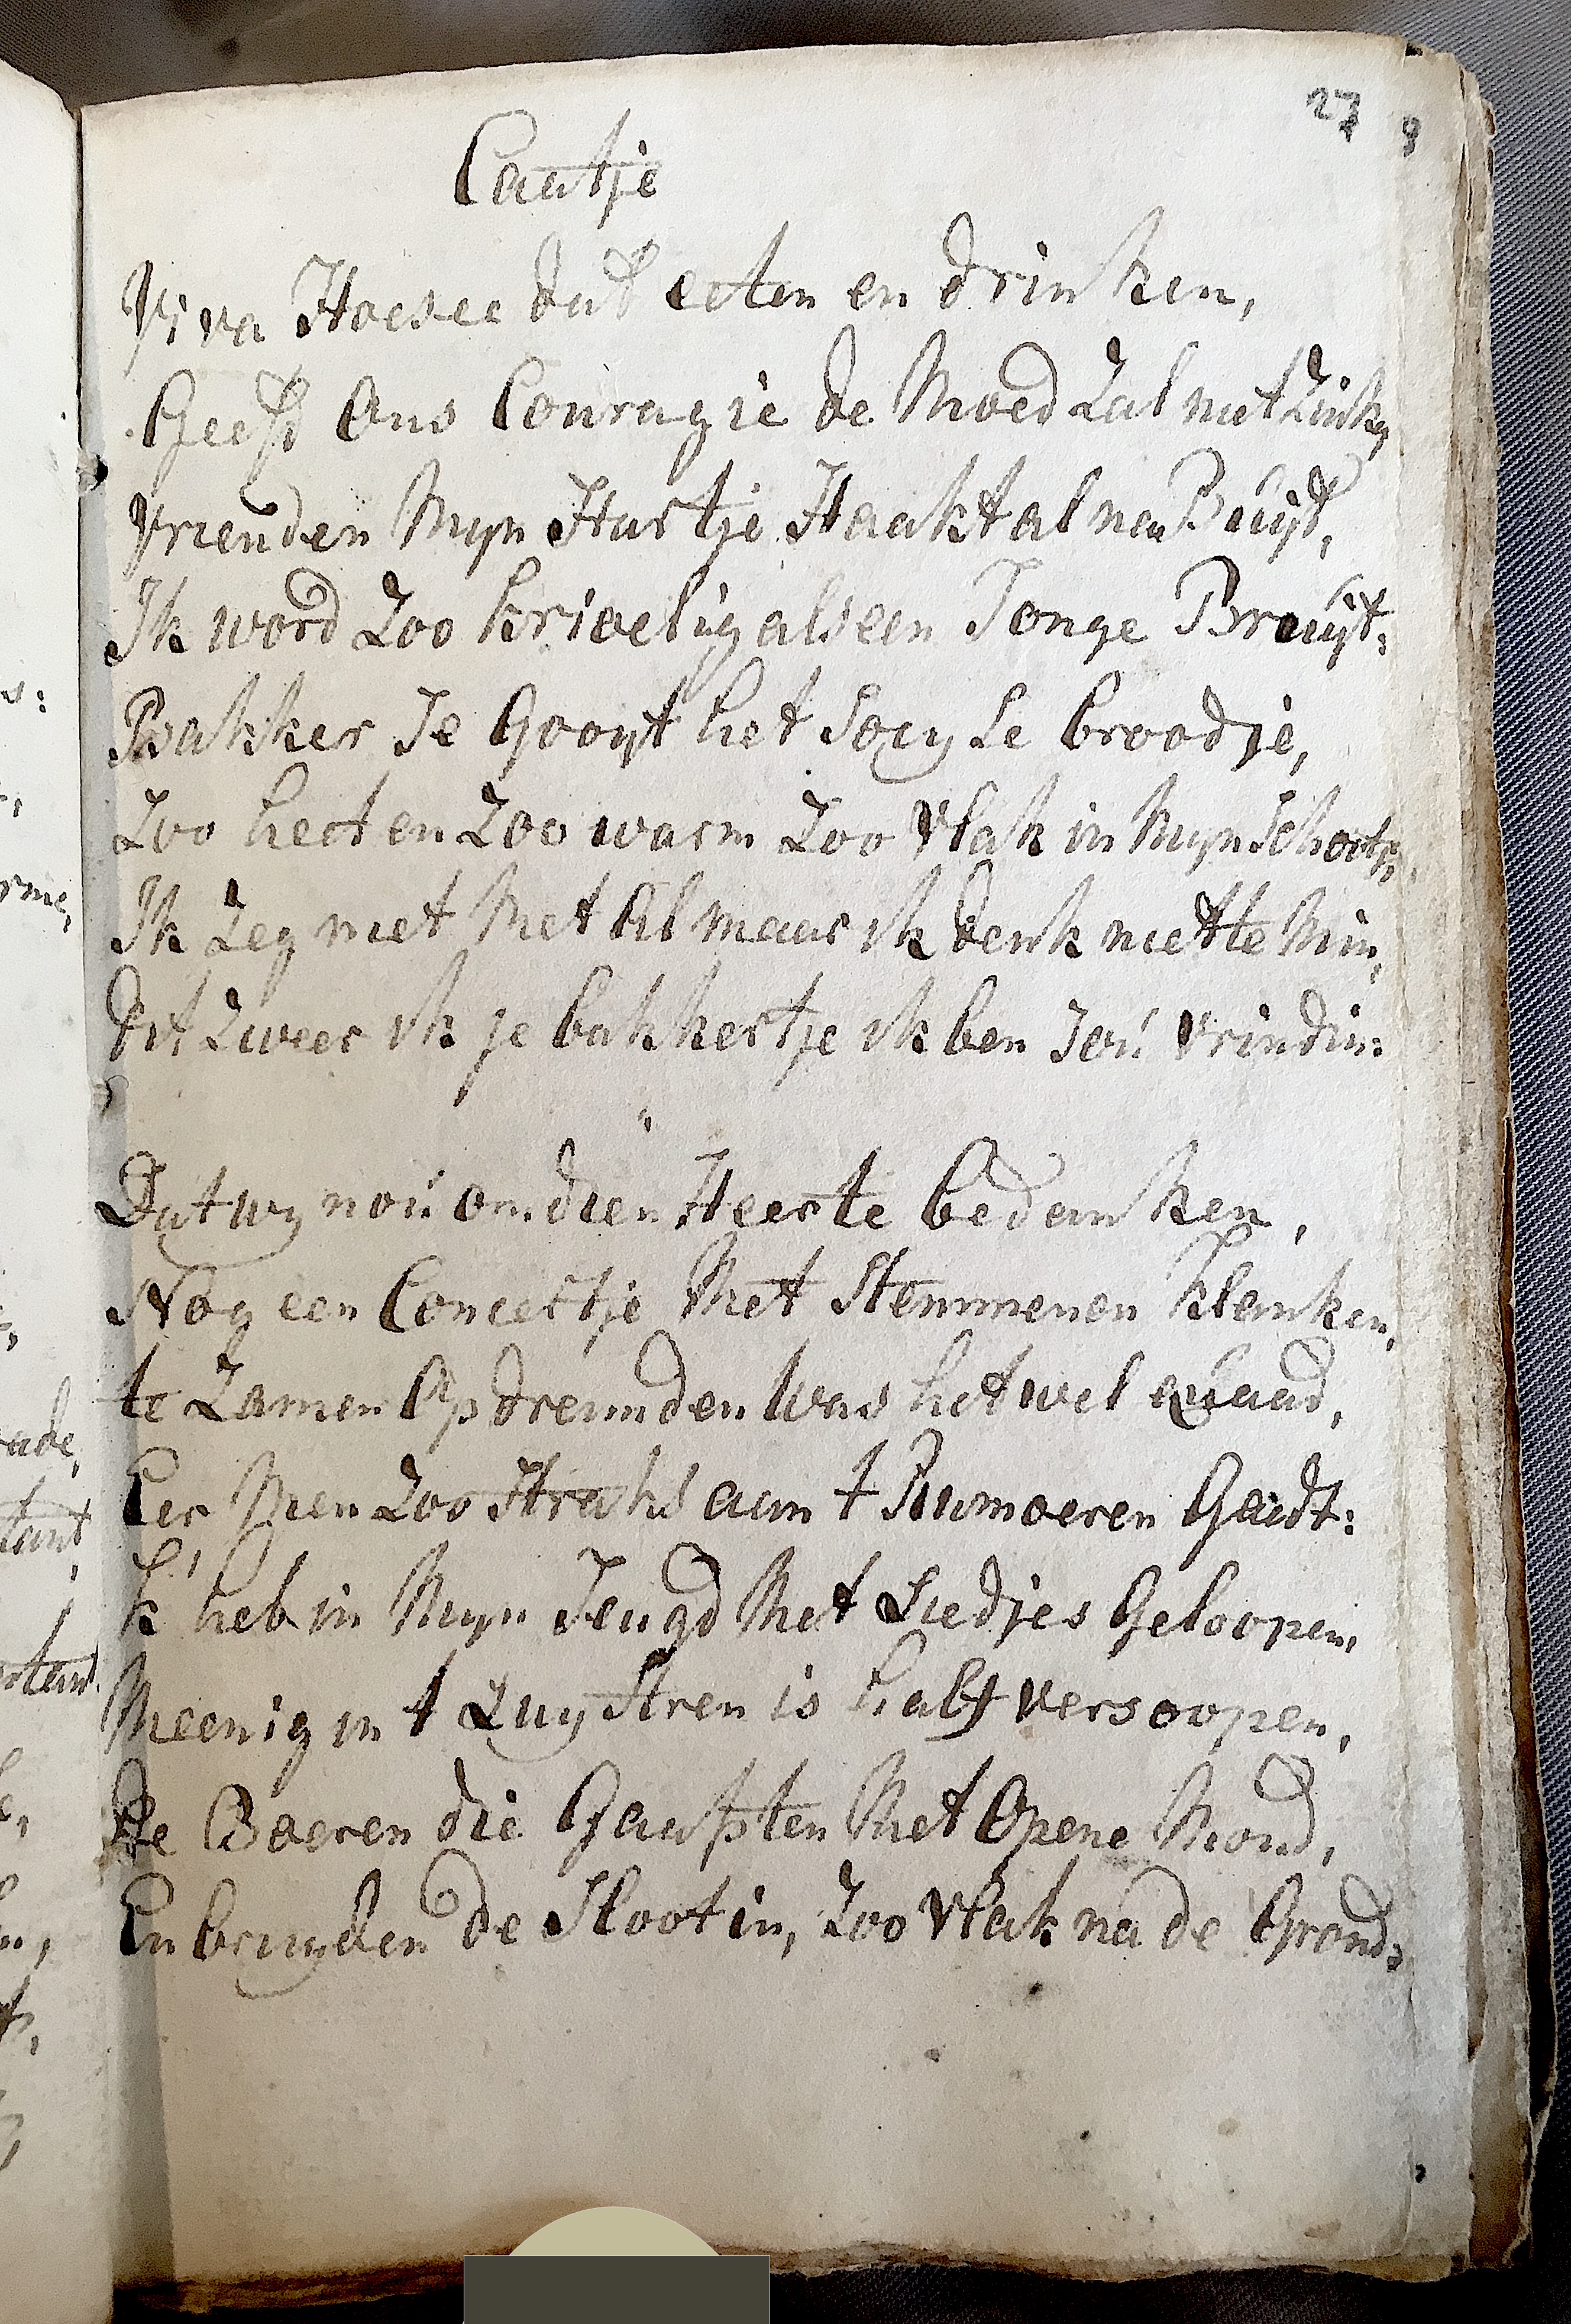 27
Caatje
Viva Hoesee dat eeten en drinken,
Geeft Ons Couragie de Moed Zal niet Zinken
Vrienden Myn Hartje Haakt al na Buÿt,
Ik word Zoo krioelig als een Jonge Bruÿt:
Bakker Je Gooyt het Soey Le broodje,
Zoo heet en Zoo warm Zoo Vlak in Myn Schootje,
Ik Zeg niet Met Al maar ik denk niet te Min,
Dit Zweer ik je bakkertje ik ben Joú Vrindin:
Dat wy noú om dien Heer te bedanken,
Nog een Concertje Met Stemmen en Klanken,
te Zamen Op dreunden Was het wel quaad,
Eer Men Zoo Straks aan t Rumoeren Gaidt:
k' heb in Myn Jeugd Met Liedjes Geloopen,
Meenig in t Luysteren is half versoopen,
De Boeren die Gaapten Met Opene Mond,
En bruyden de Sloot in, Zoo Vlak na de Grond: